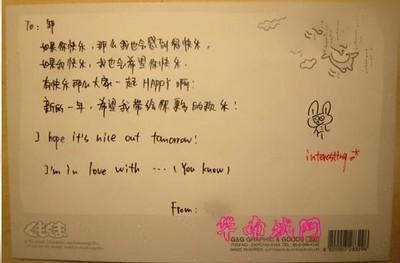 To: 邹
如果你快乐，那么我也会感到很快乐，
如果我快乐，我也会希望你快乐，
有快乐那么大家一起 HAPPY 啊！
新的一年，希望我带给你更多的欢乐！
I hope it's nice out tomorrow!
I'm in love with ... (You know)
interesting
From:
くまくま
华南城网
G&G GRAPHIC & GOODS
MADE IN KOREA